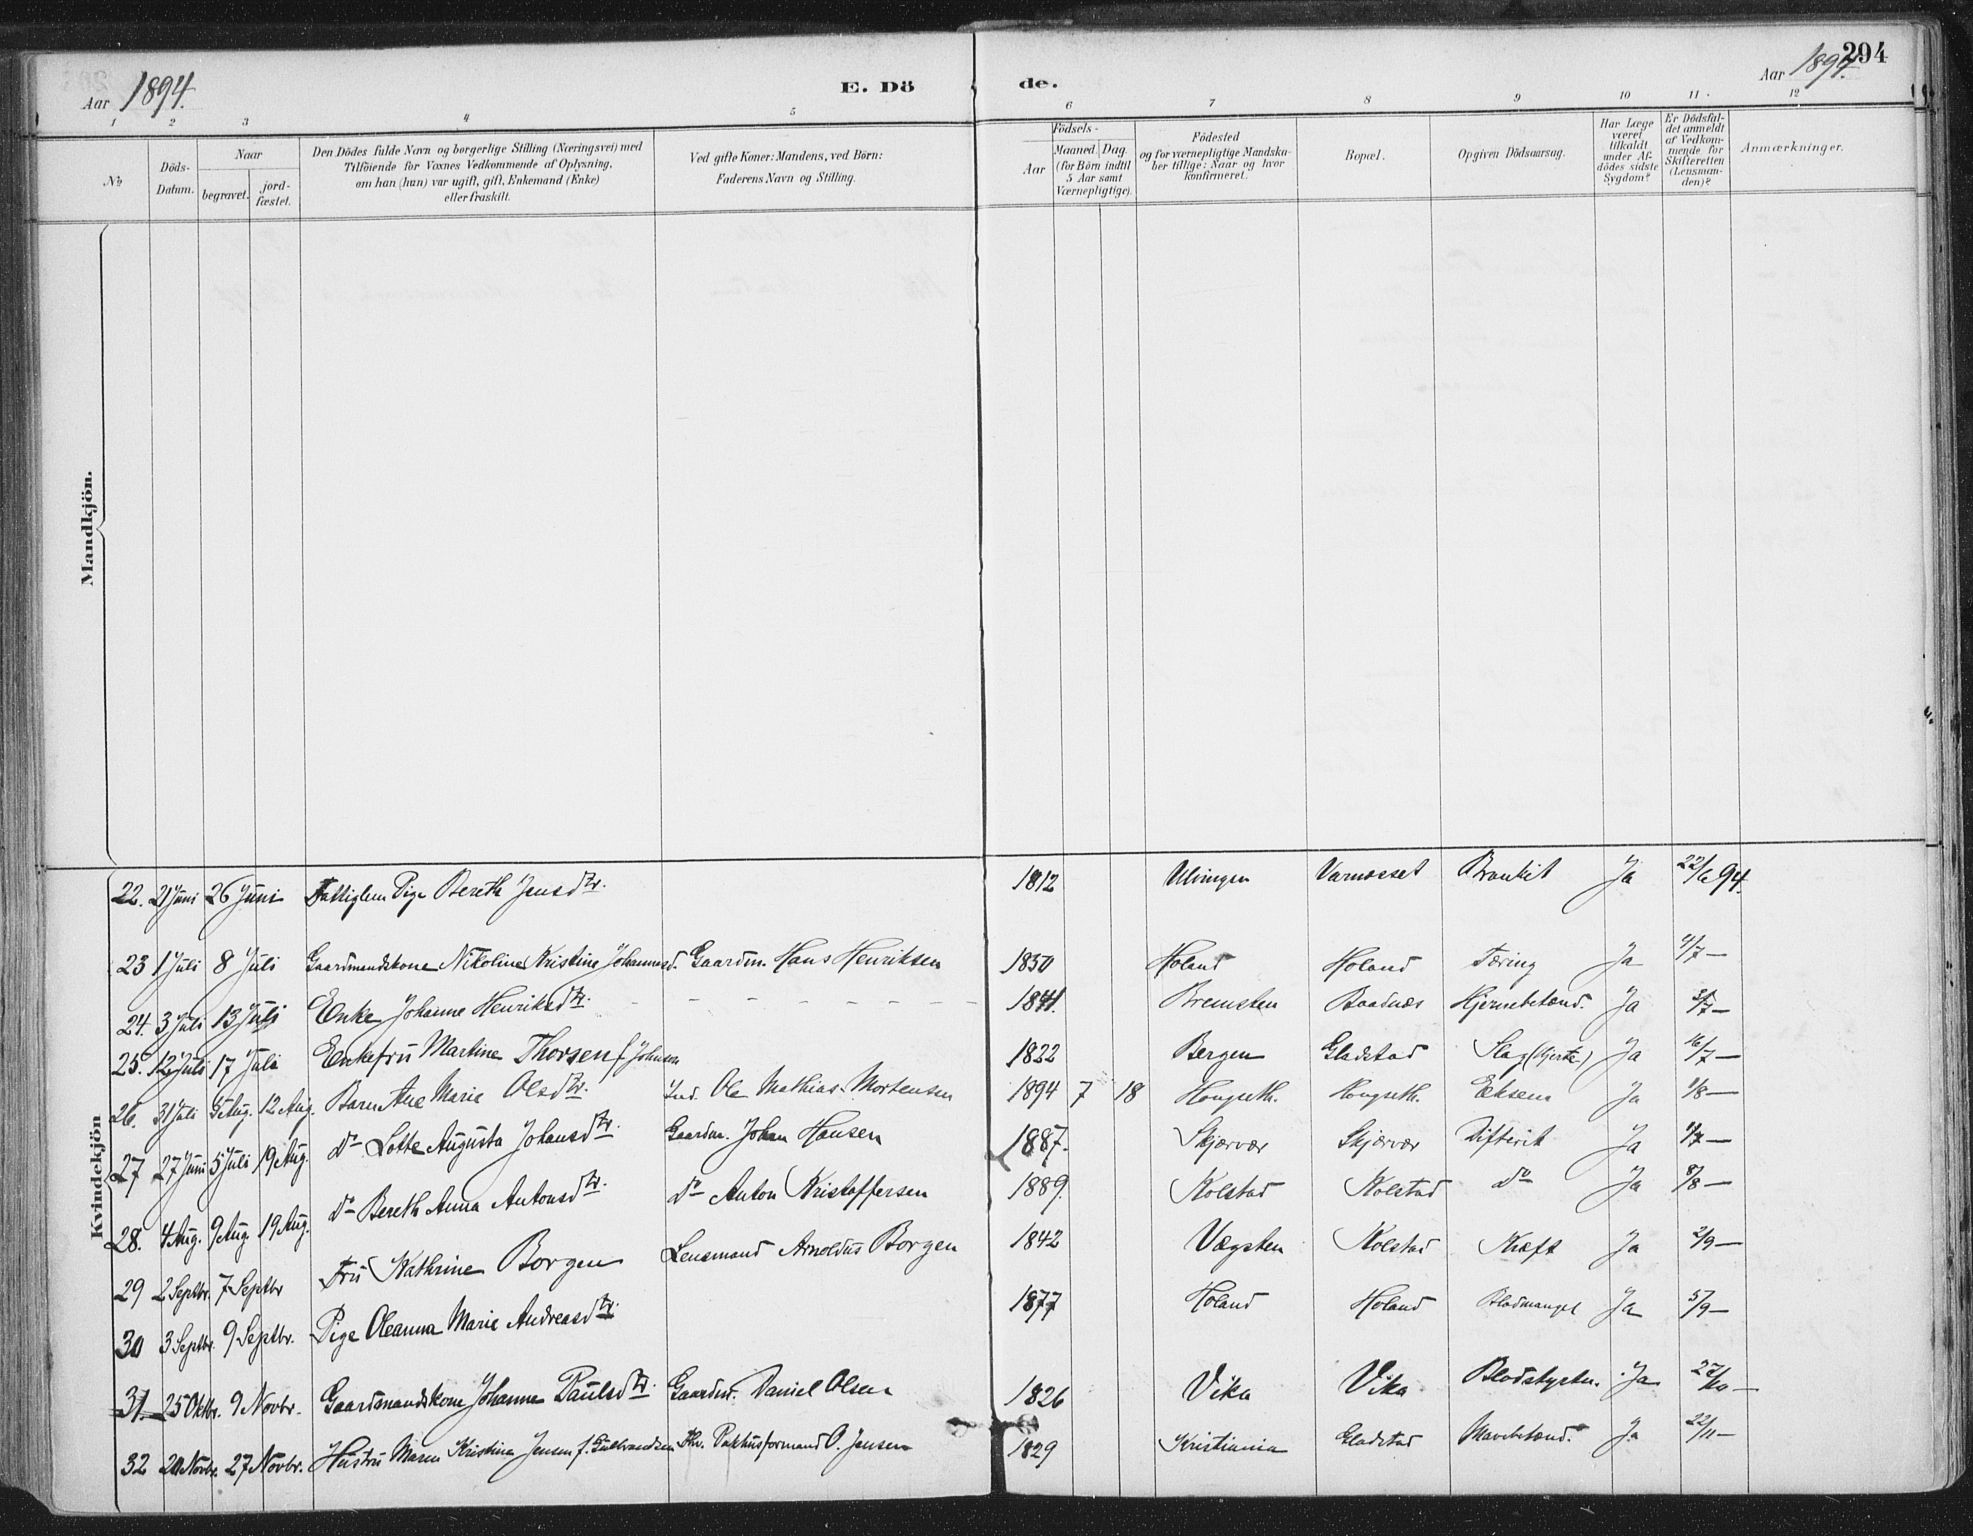 Aar 1894. E. Dö de. Aar 1894. 294
1 2 3 4 5 6 7 8 9 10 11 12
No Döds-Datum. Naar begravet. jord-fæstet. Den Dödes fulde Navn og borgerlige Stilling (Næringsvei) med Tilföiende for Voxnes Vedkommende af Oplysning, om han (hun) var ugift, gift, Enkemand (Enke) eller fraskilt. Ved gifte Koner: Mandens, ved Börn: Faderens Navn og Stilling. Födsels- Aar Maaned. Dag. (for Börn indtil 5 Aar samt Værnepligtige). Födested og for værnepligtige Mandskaber tillige: Naar og hvor konfirmeret. Bopæl. Opgiven Dödsaarsag. Har Læge været tilkaldt under Afdödes sidste Sygdom? Er Dödsfaldet anmeldt af Vedkommende for Skifteretten (Lensmanden)? Anmærkninger.
Mandkjön.
Kvindekjön
22. 21 Juni 26 Juni Fattiglem Pige Bereth Jensdtr. 1812 Ulvingen Varnæsset Bronkit Ja 22/6 94.
23 1 Juli 8 Juli Gaardmandskone Nikoline Kristine Johannesd. Gaardm. Hans Henriksen 1850 Holand Holand Tæring Ja 4/7 —
24. 3 Juli 13 Juli Enke Johanne Henriksdtr. - - - - - - - 1841. Bremsten Baadnæs Hjernebetænd. Ja 3/7 —
25. 12 Juli 17 Juli Enkefru Martine Thorsen f. Johnsen 1822 Bergen Gladstad Slag (Hjerte) Ja 16/7 —
26. 31 Juli 5 Aug. 12 Aug. Barn Ane Marie Olsdtr. Ind. Ole Mathias Mortensen 1894 7 18 Hongseth. Hongseth. Eksem Ja 1/8 —
27 27 Juni 5 Juli 19 Aug. Do Lotte Augusta Johansdtr. Gaardm. Johan Hansen 1887. Skjærvær Skjærvær Difterit Ja 1/7 —
28. 4 Aug. 9 Aug. 19 Aug. Do Bereth Anna Antonsdtr. Do Anton Kristoffersen 1889. Kolstad Kolstad Do Ja 8/8 —
29 2 Septbr. 7 Septbr Fru Kathrine Borgen Lensmand Arnoldus Borgen 1842 Vægsten Kolstad Kræft Ja 2/9 —
30 3 Septbr. 9 Septbr. Pige Oleanna Marie Andreasdtr. 1877 Holand Holand Blodmangel Ja 5/9 —
31. 25 Oktbr. 9 Novbr. Gaardmandskone Johanna Paulsdtr. Gaardm. Daniel Olsen 1826 Vika Vika Blodstyrtn. Ja 27/10 —
32 20 Novbr. 27 Novbr. Hustru Maren Kristina Jensen f. Gulbrandsen Fhv. Pakhusformand O. Jensen 1829 Kristiania Gladstad Mavebetænd. Ja 22/11 —